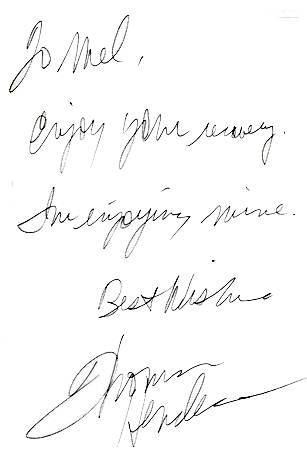 To Mel,
enjoy your recovery.
I'm enjoying mine.
Best Wishes
Thomas
Henderson